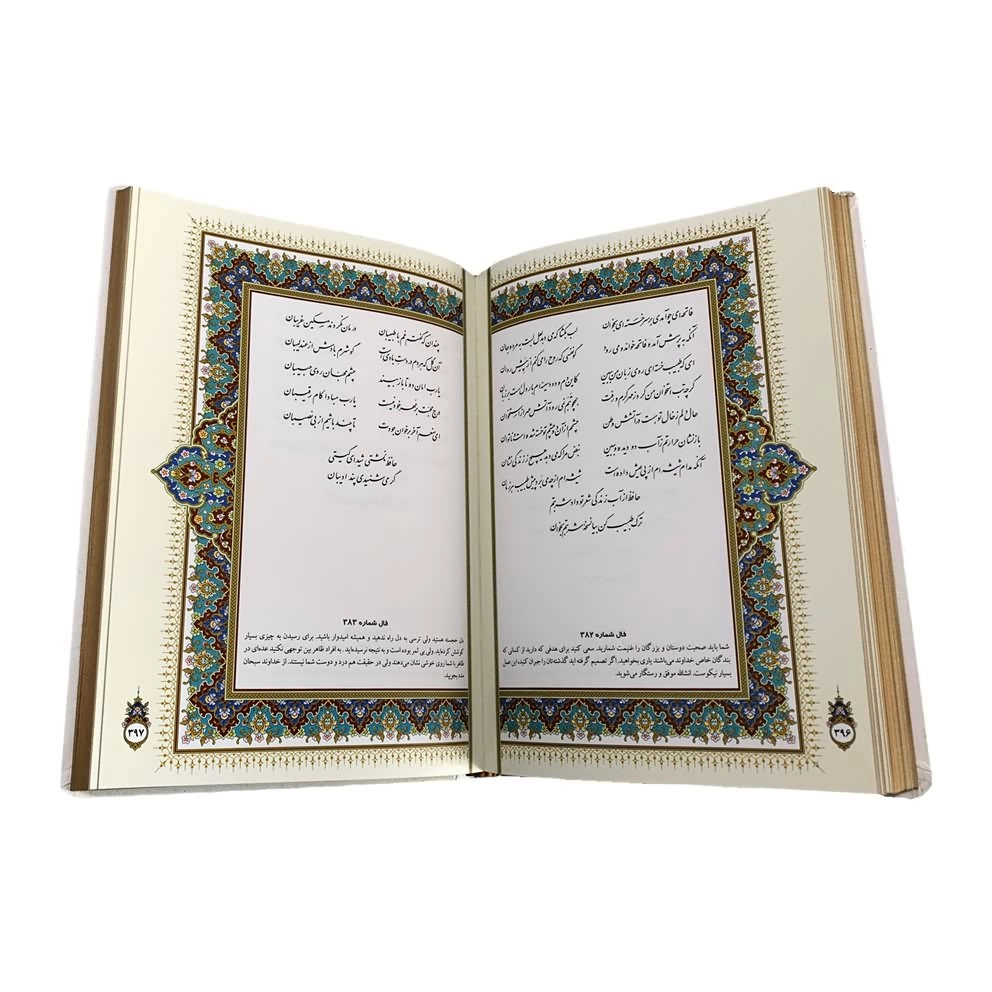 فاتحه‌ای چو آمدی بر سر خسته‌ای بخوان لب بگشا که می‌دهد لعل لبت به مرده جان
آنکه به پرسش آمد و فاتحه خواند و می رود گو نفسی که روح را می‌کنم از پیش روان
ای که طبیب خسته‌ای روی زبان من ببین کاین دم و دود سینه‌ام بار دل است بر زبان
گرچه تب استخوان من کرد ز مهر گرم و رفت همچو تبم نمی رود آتش مهر از استخوان
حال دلم ز خال تو هست در آتشش وطن چشمم از آن دو چشم تو خسته شده است و ناتوان
بازنشان حرارتم ز آب دو دیده و ببین نبض مرا که می‌دهد هیچ ز زندگی نشان
آنکه مدام شیشه‌ام از پی عیش داده است شیشه‌ام از چه می‌برد پیش طبیب هر زمان
حافظ از آب زندگی شعر تو داد شربتم
ترک طبیب کن بیا نسخه شربتم بخوان
فال شماره ۳۸۲
شما باید صحبت دوستان و بزرگان را غنیمت شمارید. سعی کنید برای هدفی که دارید از کسانی که
بندگان خاص خداوند می‌باشند یاری بخواهید. اگر تصمیم گرفته اید گذشته‌تان را جبران کنید، این عمل
بسیار نیکوست. انشاالله موفق و رستگار می‌شوید.
۳۹۶
چندان که گفتم غم با طبیبان درمان نکردند مسکین غریبان
آن گل که هر دم در دست بادی است گو شرم بادش از عندلیبان
یارب امان ده تا بازبیند چشم محبان روی حبیبان
درج محبت بر مهر خود نیست یارب مبادا کام رقیبان
ای منعم آخر بر خوان جودت تا چند باشیم از بی نصیبان
حافظ نگشتی شیدای گیتی
گر می شنیدی پند ادیبان
فال شماره ۳۸۳
دل خجسته هستید ولی ترسی به دل راه ندهید و همیشه امیدوار باشید. برای رسیدن به چیزی بسیار
کوشش کرده‌اید، ولی بی ثمر بوده است و به نتیجه نرسیده‌اید. به افراد ظاهر بین توجهی نکنید عده‌ای در
ظاهر با شما روی خوشی نشان می‌دهند ولی در حقیقت هم درد و دوست شما نیستند. از خداوند سبحان
مدد بجویید.
۳۹۷